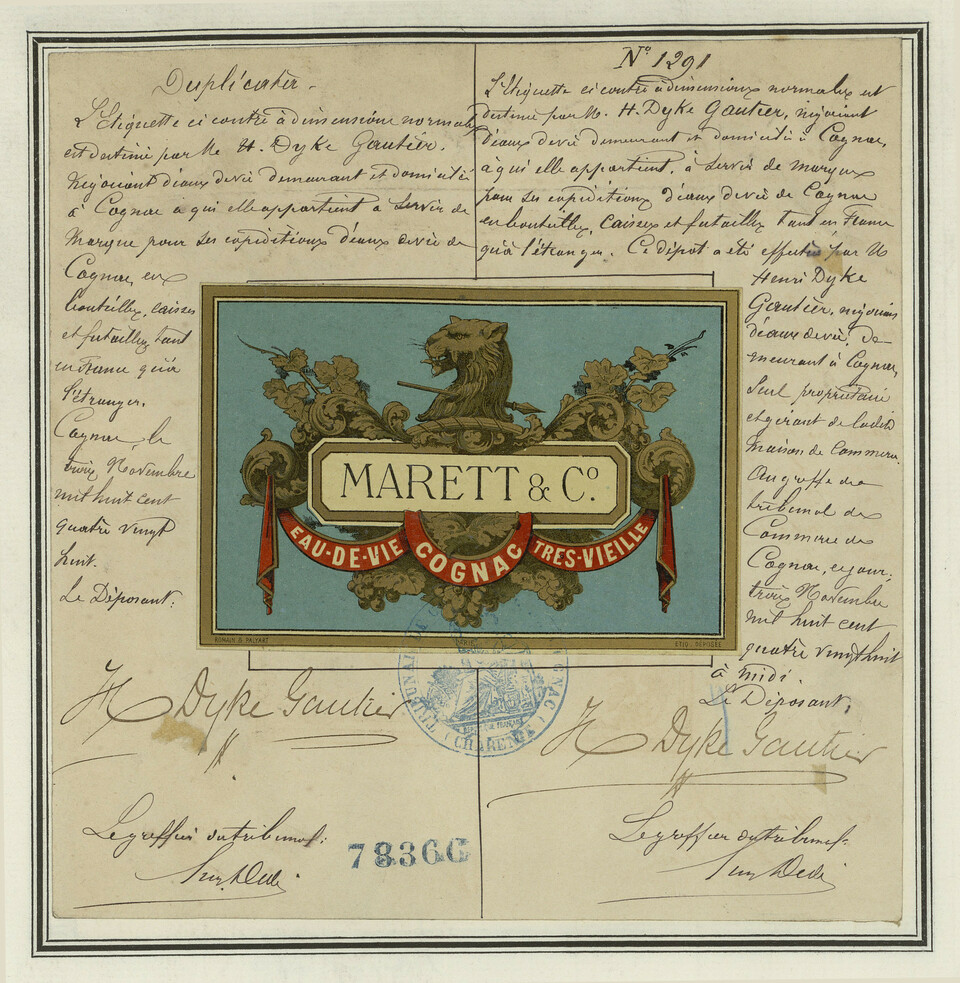 Duplicata.
L'Etiquette ci contre à dimensions normales
est destiné par Mr H. Dyke Gautier.
Négociant d'eaux de vie demeurant et domicilié
à Cognac à qui elle appartient a servir de
Marque pour ses expéditions d'eaux de vie de
Cognac, en
bouteilles, caisses
et futailles tant
en France qu'à
l'étranger.
Cognac, le
trois Novembre
mil huit cent
quatre vingt
huit.
Le Déposant:
H Dyke Gautier
Le greffier du tribunal:
N° 1291
L'Etiquette ci contre à dimensions normales est
destinée par M. H. Dyke Gautier, négociant
d'eaux de vie demeurant et domicilié à Cognac,
à qui elle appartient, à servir de marque
pour ses expéditions d'eaux de vie de Cognac
en bouteilles, caisses et futailles tant en France
qu'à l'étranger. Ce dépot a été effectué par M
Henri Dyke
Gautier, négociant
d'eaux de vie, de
meurant à Cognac,
Seul propriétaire
et gérant de la dite
maison de commerce.
Au greffe du
tribunal de
Commerce de
Cognac, ce jour,
trois Novembre
mil huit cent
quatre vingt huit
à midi.
Le Déposant,
H Dyke Gautier
Le greffier du tribunal:
MARETT & Co.
EAU-DE-VIE COGNAC TRES-VIEILLE
ROMAIN & PALYART
ETIQ. DEPOSEE
(CHARENTE)
7836